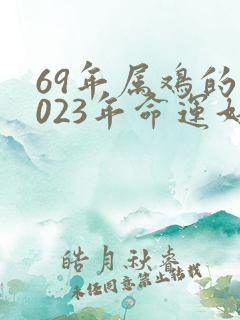 69年属鸡的
023年命运如
皓月秋睿
未经同意禁止转载